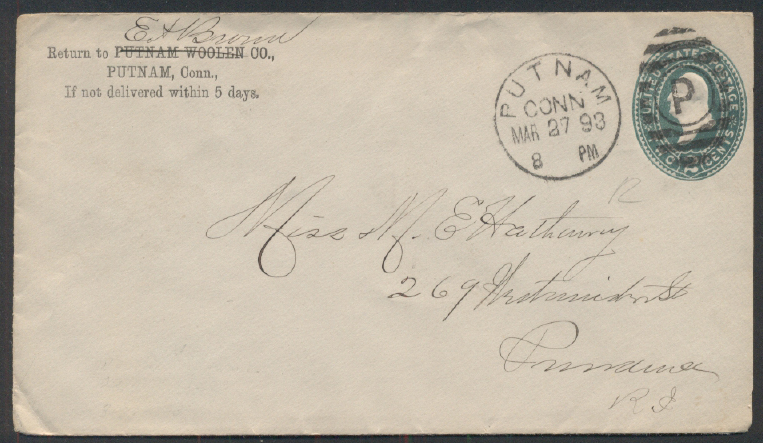 E A Brown
Return to PUTNAM WOOLEN CO.,
PUTNAM, Conn.,
If not delivered within 5 days.
PUTNAM
CONN
MAR 27 93
8 PM
UNITED STATES POSTAGE
TWO CENTS
P
2
12
Miss M. E Hathaway
269 Westminster St
Providence
R I